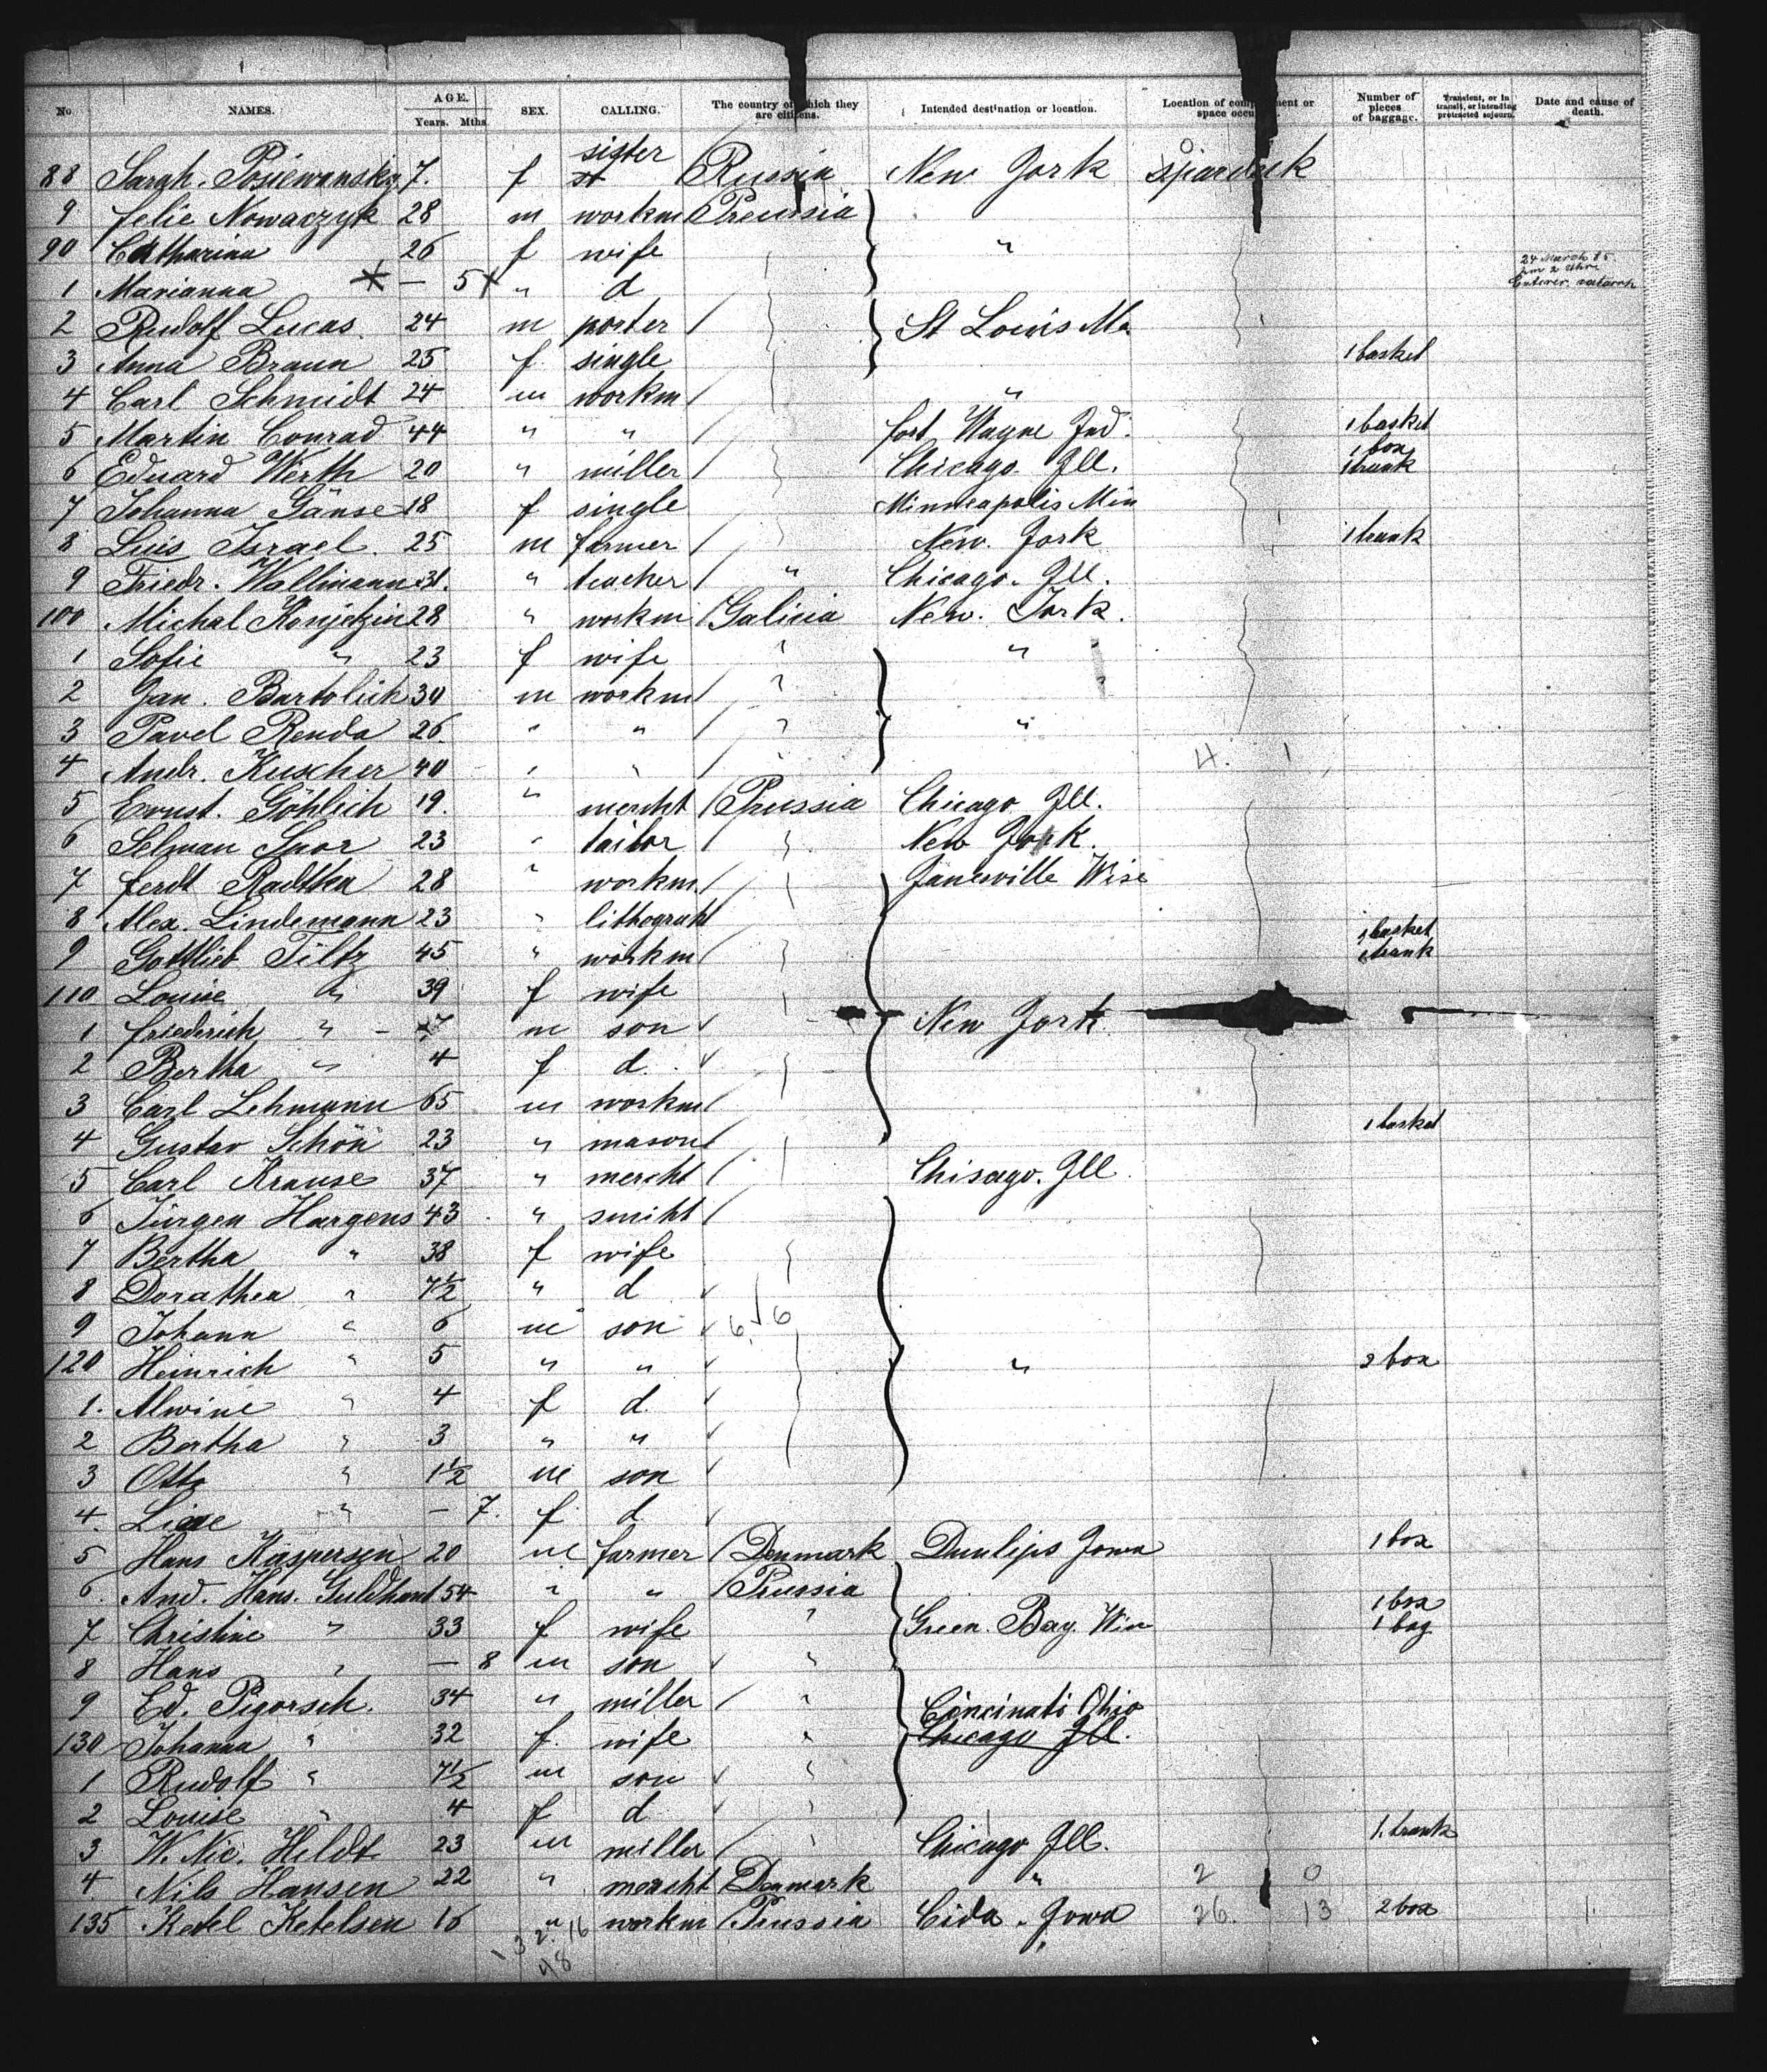 No. NAMES. AGE. Years. Mths. SEX. CALLING. The country of which they are citizens. Intended destination or location. Location of compartment or space occupied. Number of pieces of baggage. Transient, or in transit, or intending protracted sojourn. Date and cause of death.
88 Sarah. Posiewansky 7. f sister Russia New York
9 felie Nowaczyk 28 m workm Preussia
90 Catharina 26 f wife "
1 Marianna — 5 " d 24 March 85.
2 Rudolf Lucas 24 m porter St Louis Mo
3 Anna Braun 25 f. single 1 basket
4 Carl Schmidt 24 m workm "
5 Martin Conrad 44 " " fort Wayne Ind. 1 basket
6 Eduard Werth 20 " miller Chicago Ill. 1 box 1 trunk
7 Johanna Gänse 18 f single Minneapolis Min
8 Luis Israel. 25 m farmer New. York 1 trunk
9 Friedr. Wallmann 31. " teacher " Chicago. Ill.
100 Michal Konjetzin 28 " workm Galicia New. York.
1 Sofie " 23 f wife " "
2 Jan. Bartolich 30 m workm "
3 Pavel Renda 26. " " " "
4 Andr. Kuscher 40 " " " 4. 1
5 Ernst. Göhlich 19. " mercht Prussia Chicago Ill.
6 Selman 23 " tailor New York.
7 ferdt Radtka 28 " workm Janesville Wisc
8 Alex. Lindemann 23 " lithograht
9 Gottlieb Tiltz 45 " workm 1 basket 1 trunk
110 Louise " 39 f wife
1 friederich " — 7 m son New York
2 Bertha " 4 f d.
3 Carl Lehmann 65 m workm
4 Gustav Schön 23 " mason 1 basket
5 Carl Krause 37 " mercht Chisago. Ill.
6 Jürgen Hargens 43 " smiht
7 Bertha " 38 f wife
8 Dorathea " 7½ " d
9 Johann " 6 m son 6. 6
120 Heinrich " 5 " " " 2 box
1. Alwine " 4 f d.
2 Bertha " 3 " "
3 Otto " 1½ m son
4. " — 7. f. d.
5 Hans Kaspersen 20 m farmer Denmark Dunlips Jowa 1 box
6. And. Hans. 54 " " Prussia
7 Christine " 33 f wife " Green. Bay. Wisc 1 box 1 bag
8 Hans " — 8 m son "
9 Ed. Pigorsch. 34 " miller " Cincinati Ohio
130 Johanna " 32 f. wife " Chicago Ill.
1 Rudolf " 7½ m son "
2 Louise " 4 f d "
3 W. Nic. Heldt 23 m miller " Chicago Ill. 1. trunk
4 Nils Hansen 22 " mercht Denmark " 2 0
135 Ketel Ketelsen 16 " workm Prussia Cida. Jowa 26. 13 2 box 1.
1 3 2. 16
48